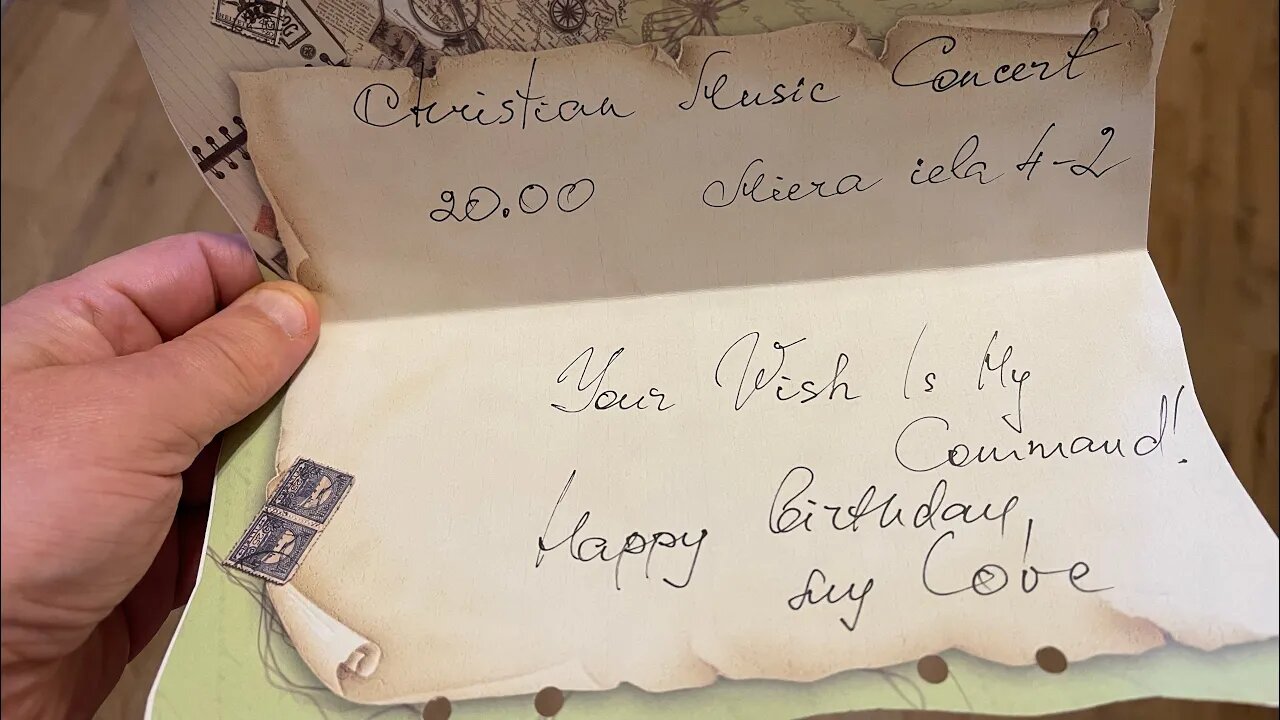 Christian Music Concert
20.00 Miera iela 4-2
Your Wish Is My
Command!
Happy Birthday,
my Love